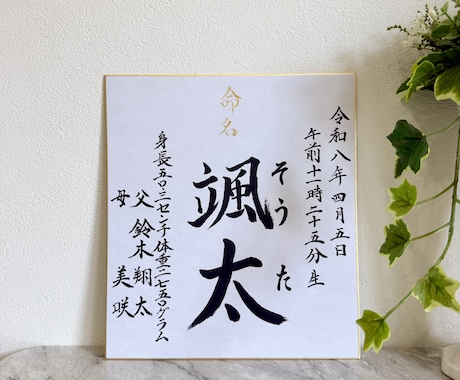 命名
令和八年四月五日
午前十一時二十五分生
そうた
颯太
身長五〇.三センチ体重二七五〇グラム
父 鈴木翔太
母 美咲